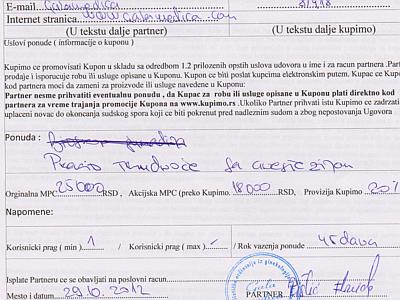 E-mail
Internet stranica www.galamedica.com
(U tekstu dalje partner) (U tekstu dalje kupimo)
Uslovi ponude ( informacije o kuponu )
Kupimo ce promovisati Kupon u skladu sa odredbom 1.2 prilozenih opstih uslova udovora u ime i za racun partnera .Part
prodaje i isporucuje robu ili usluge opisane u Kuponu. Kupon ce biti poslat kupcima elektronskim putem. Kupac ce Kupo
kod partnera moci da zameni za proizvode ili usluge navedene u Kuponu:
Partner nesme prihvatiti eventualnu ponudu , da Kupac za robu ili usluge opisane u Kuponu plati direktno kod
partnera za vreme trajanja promocije Kupona na www.kupimo.rs .Ukoliko Partner prihvati istu Kupimo ce zadrzati
uplaceni novac do okoncanja sudske spora koji ce biti pokrenut pred nadleznim sudom a zbog nepostovanja Ugovora
Ponuda :
Orginalna MPC 25000 RSD , Akcijska MPC (preko Kupimo 18000 RSD, Provizija Kupimo 20%
Napomene:
Korisnicki prag ( min ) 1 / Korisnicki prag ( max ) / Rok vazenja ponude 45 dana
Isplate Partneru ce se obavljati na poslovni racun
Mesto i datum 29.10.2012 PARTNER